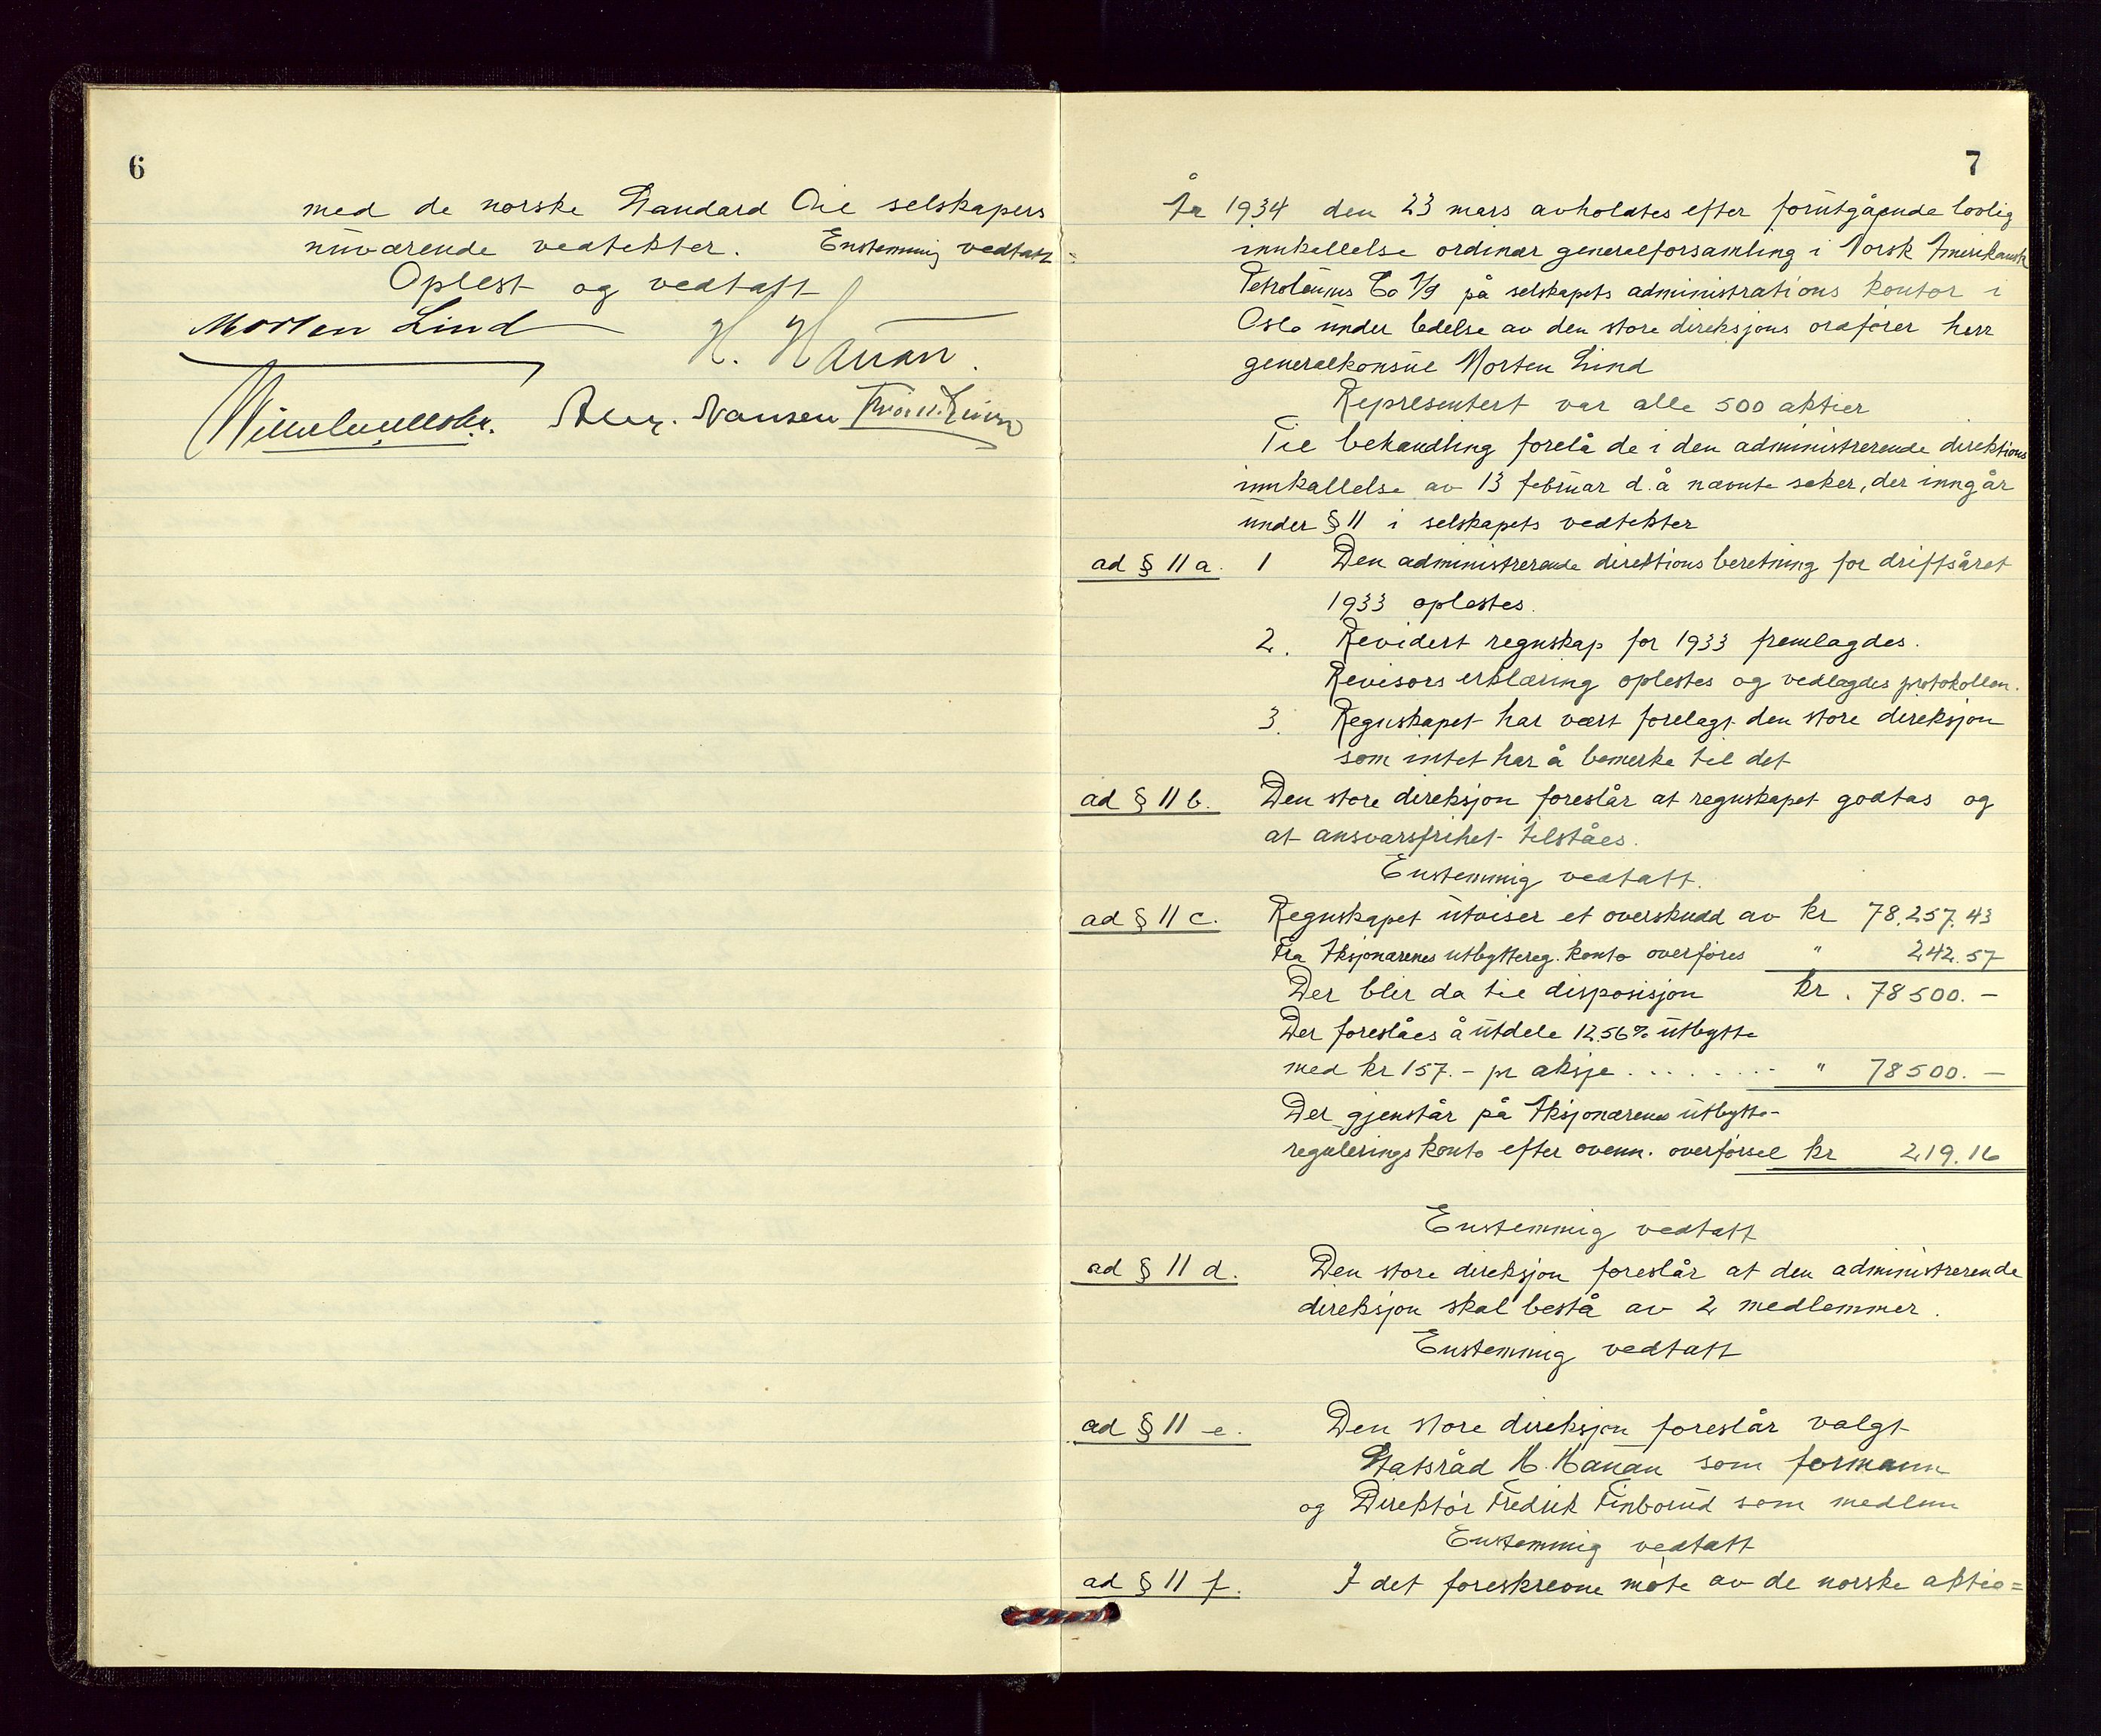 6
med de norske Standard Oil selskapers
nuværende vedtekter. Enstemmig vedtatt
Oplest og vedtatt
Morten Lind H. Hauan.
Alex. Nansen
7
År 1934 den 23 mars avholdtes efter forutgående lovlig
innkallelse ordinær generalforsamling i Norsk Amerikansk
Petroleums Co A/S på selskapets administrations kontor i
Oslo under ledelse av den store direksjons ordfører herr
generalkonsul Morten Lind
Representert var alle 500 aktier
Til behandling forelå de i den administrerende direktions
innkallelse av 13 februar d.å nævnte saker, der inngår
under § 11 i selskapets vedtekter
ad § 11 a. 1 Den administrerende direktions beretning for driftsåret
1933 oplestes.
2. Revidert regnskap for 1933 fremlagdes.
Revisors erklæring oplestes og vedlagdes protokollen.
3. Regnskapet har vært forelagt den store direksjon
som intet har å bemerke til det
ad § 11 b. Den store direksjon foreslår at regnskapet godtas og
at ansvarsfrihet tilståes.
Enstemmig vedtatt.
ad § 11 c. Regnskapet utviser et overskudd av kr 78.257.43
Fra Aksjonærenes utbyttereg. konto overføres " 242.57
Der blir da til disposisjon kr. 78500.-
Der foreslåes å utdele 12.56% utbytte
med kr 157.- pr aksje ........ " 78500.-
Der gjenstår på Aksjonærenes utbytte-
regulerings konto efter ovenn. overførsel kr 219.16
Enstemmig vedtatt
ad § 11 d. Den store direksjon foreslår at den administrerende
direksjon skal bestå av 2 medlemmer.
Enstemmig vedtatt
ad § 11 e. Den store direksjon foreslår valgt
Statsråd H. Hauan som formann
og Direktør Fredrik Finborud som medlem
Enstemmig vedtatt
ad § 11 f. I det foreskrevne møte av de norske aktio=